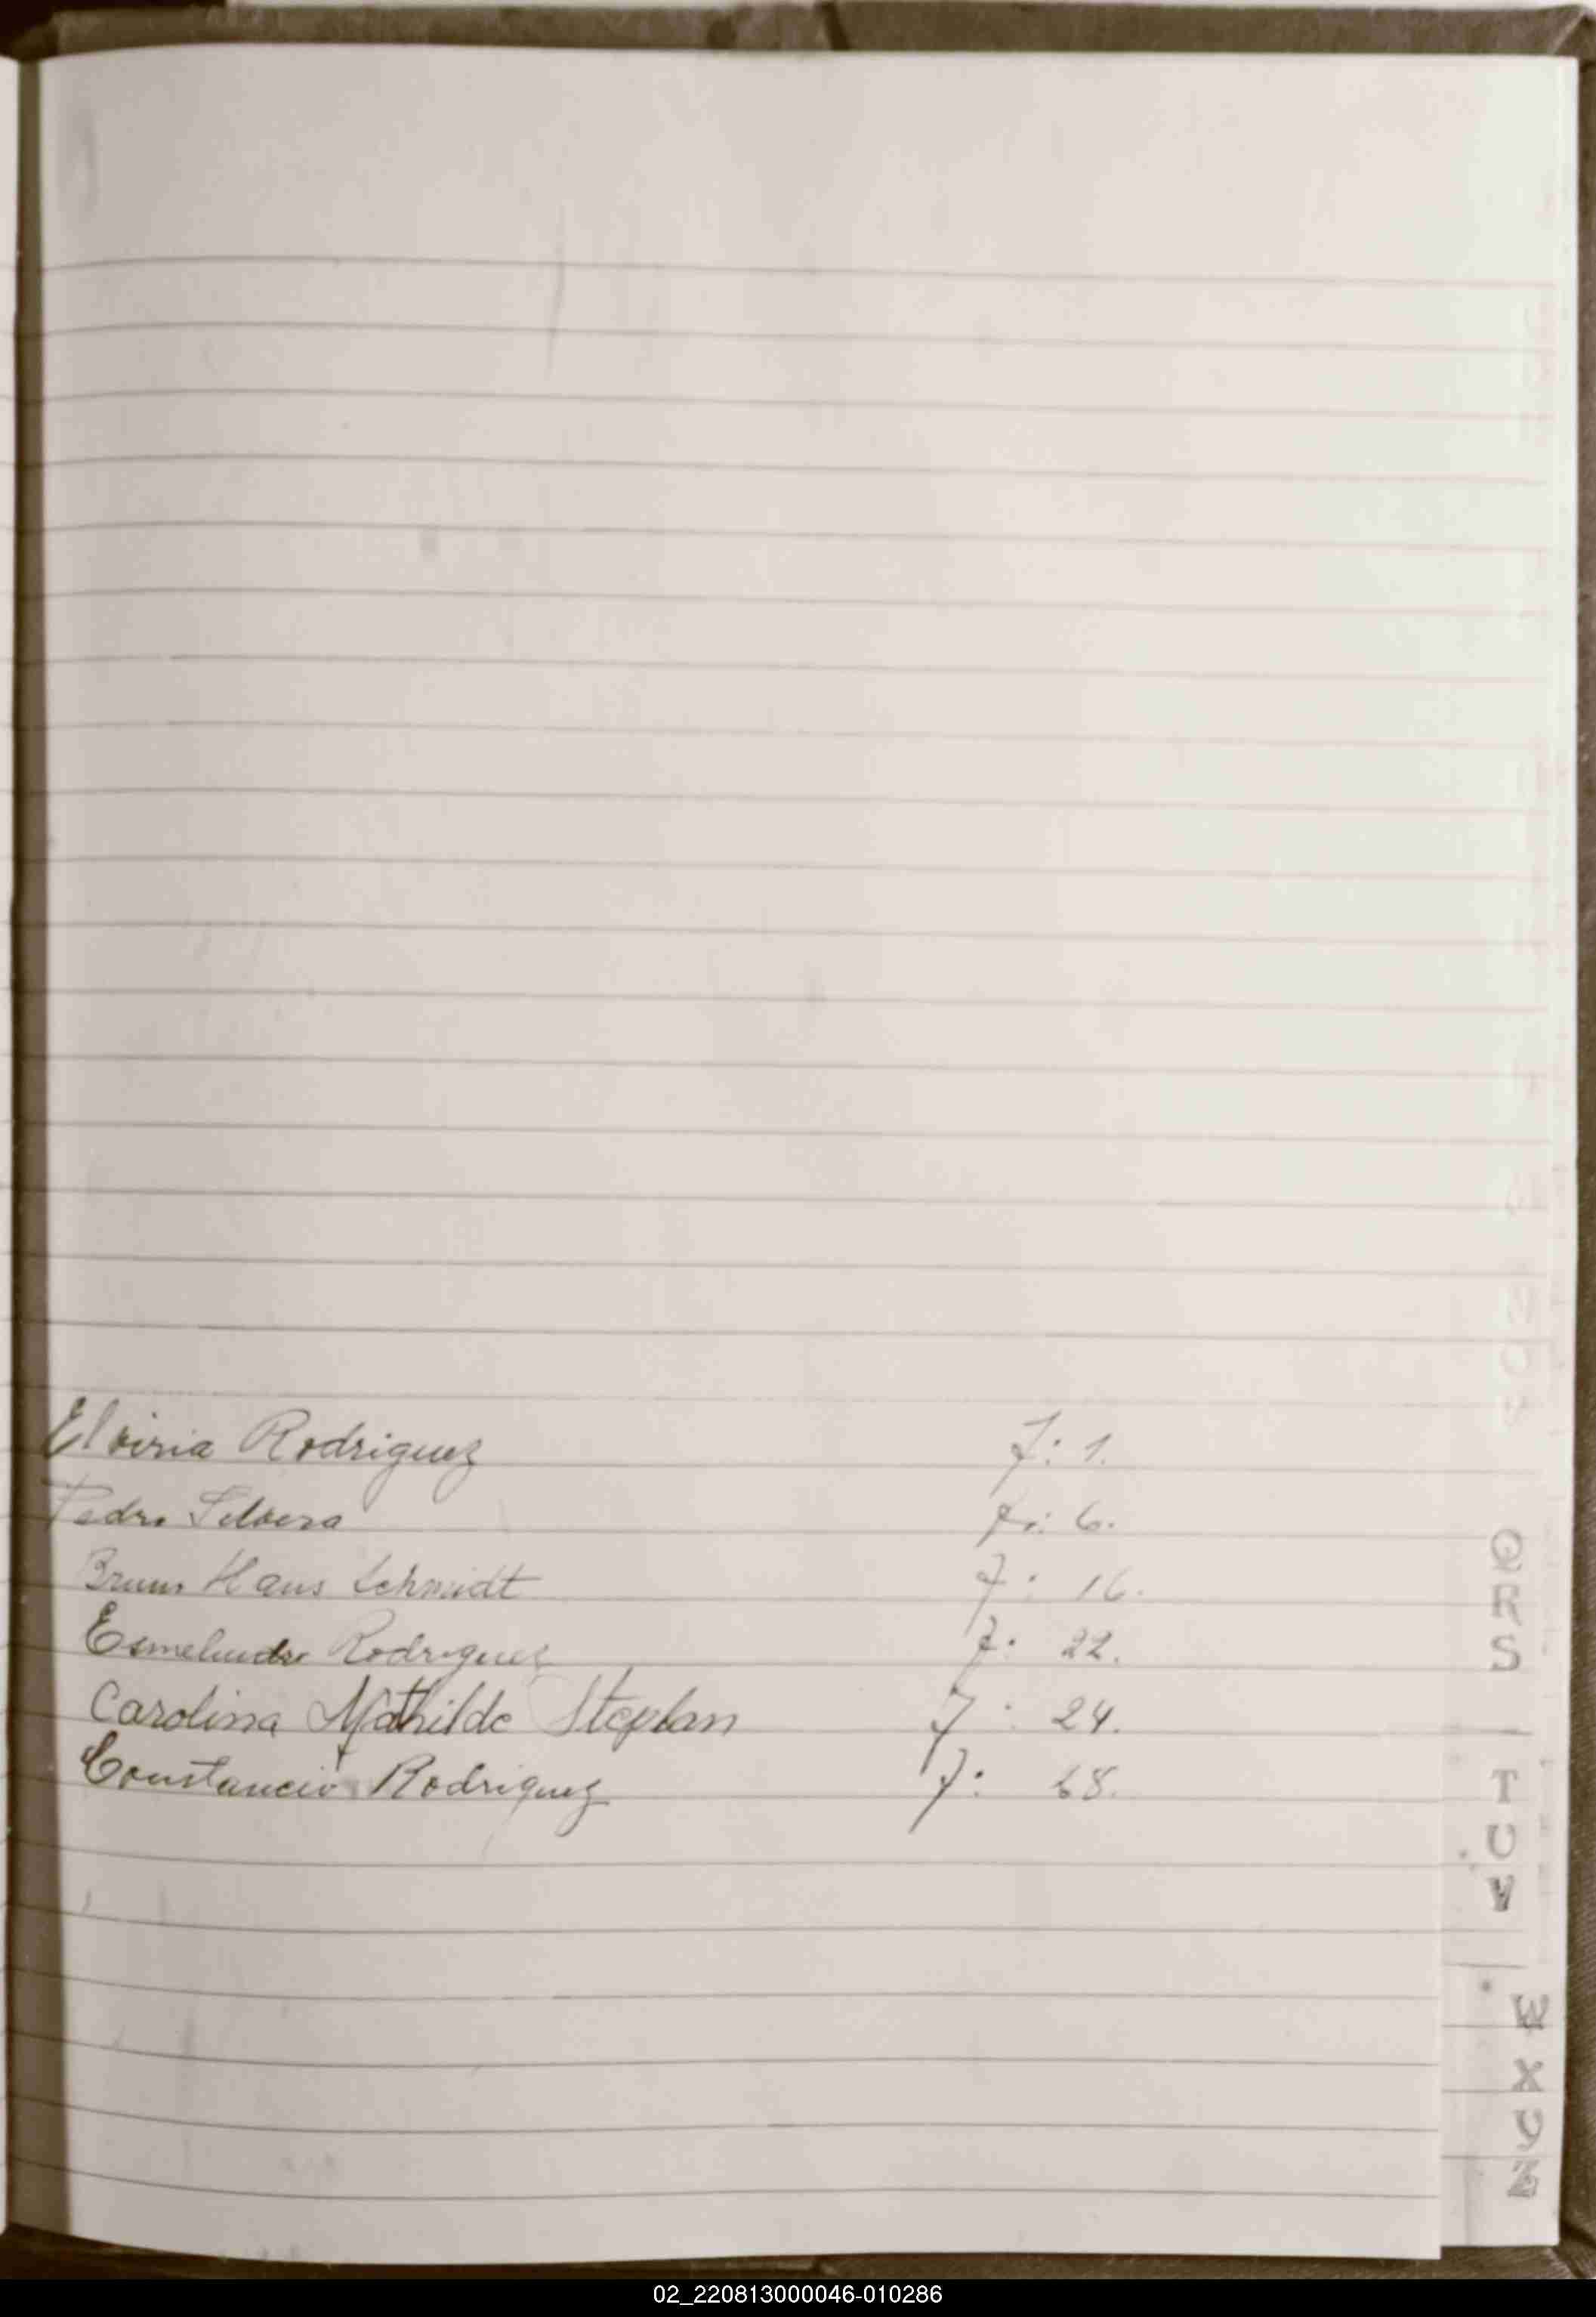 Elviria Rodriguez f: 1.
Pedro Silvera f: 6.
Bruno Hans Schmidt f: 16.
Rodriguez f: 22.
Carolina Mathilde Stephan f: 24.
Constancio Rodriguez f: 68.
Q
R
S
T
U
V
W
X
Y
Z
02_220813000046-010286